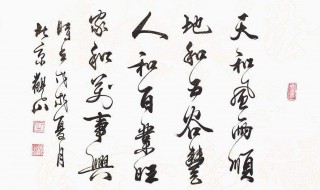 天和風雨順
地和五谷豐
人和百業旺
家和萬事興
時在戊戌夏月
北京觀山